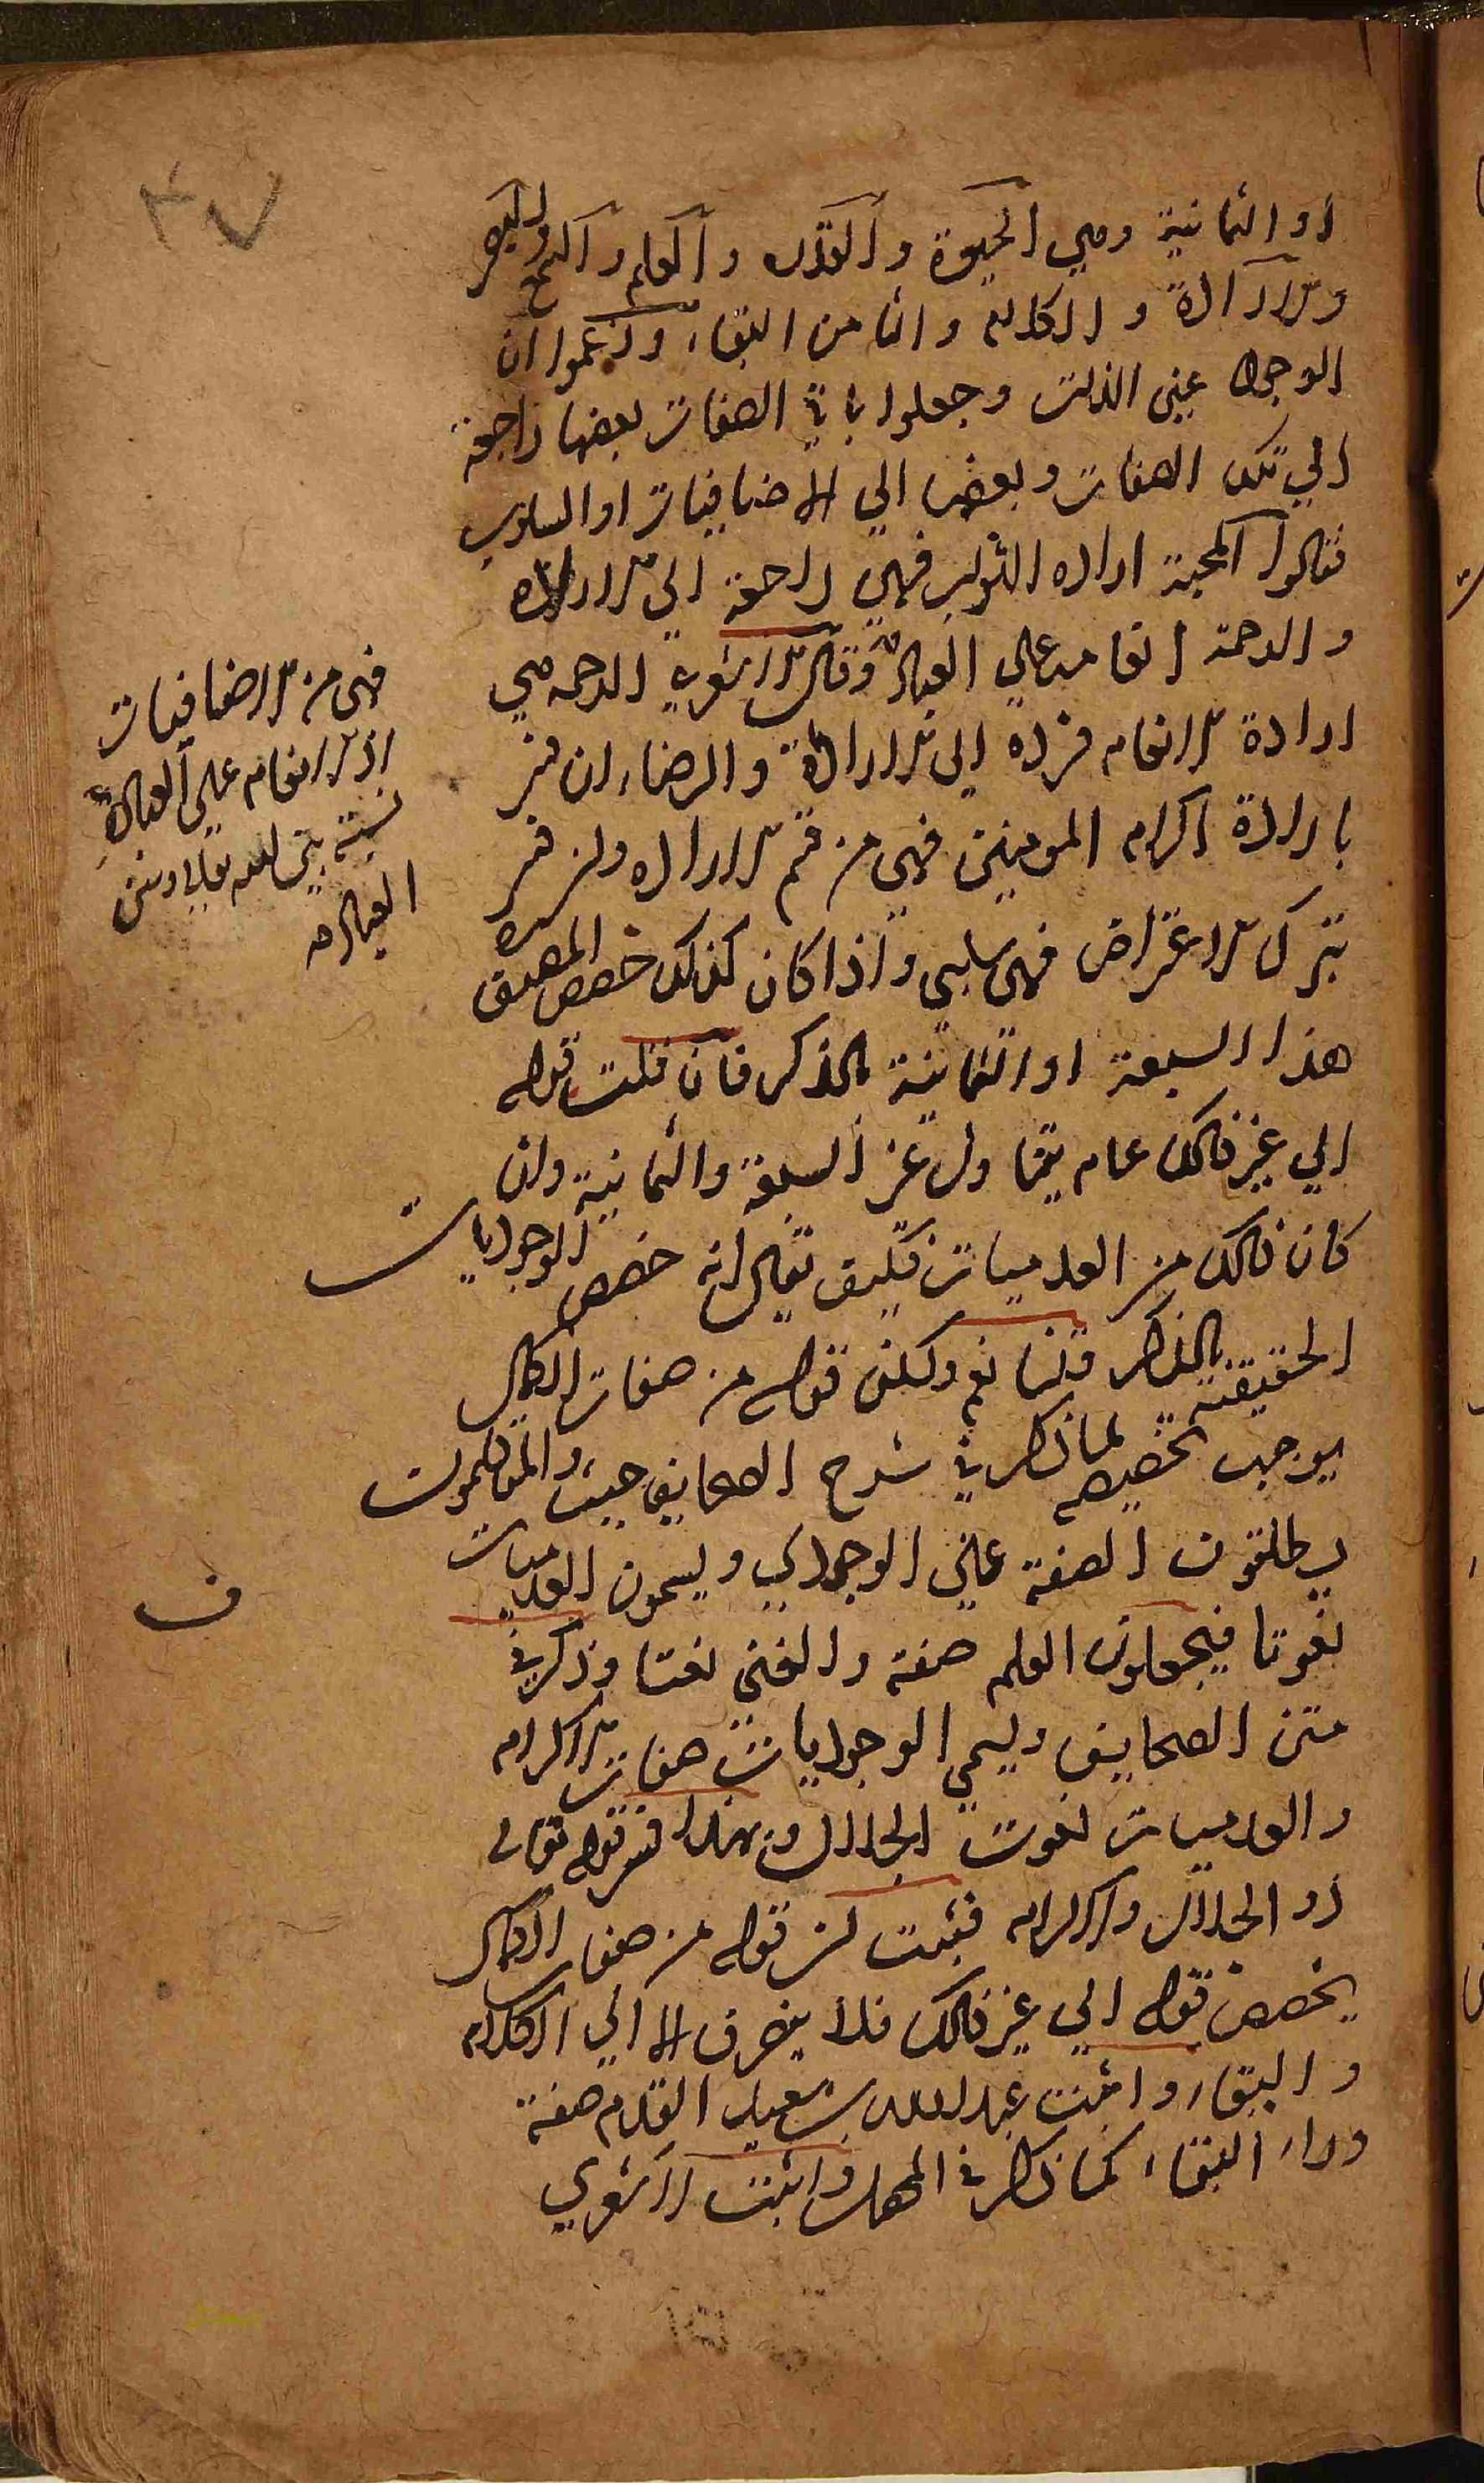 او الثمانية وهي الحيوة والقدرة والعلم والسمع والبصر
والارادة والكلام والثامن البقاء وزعموا ان
الوجود عين الذات وجعلوا باقي الصفات بعضها راجعة
الي تلك الصفات وبعضها الي الاضافيات او السلوب
فقالوا المحبة ارادة الثواب فهي راجعة الي الارادة
والرحمة انعامه علي العباد وقال الاشعري الرحمة هي
ارادة الانعام فترده الي الارادة والرضاء ان فسر
بارادة اكرام المومنين فهي من قسم الارادة وان فسر
بترك الاعتراض فهي سلبي واذا كان كذلك خصص المصنف
هذا السبعة او الثمانية بالذكر فان قلت قوله
الي غير ذلك عام يتناول غير السبعة والثمانية وان
كان ذلك من العدميات فكيف تقال انه خصص الوجوديات
الحقيقية بالذكر قلنا نعم ولكن قوله من صفات الكمال
يوجب تخصيصه لما ذكر في شرح الصحايف حيث والمتكلمون
يطلقون الصفة علي الوجودي ويسمون العدميات
نعوتا فيجعلون العلم صفة والغني نعتا وذكر في
متن الصحايف ويسمي الوجوديات صفات الاكرام
والعدميات نعوت الجلال وبهذا فسر قوله تعالي
ذو الجلال والاكرام فثبت ان قوله من صفات الكمال
يخصص قوله الي غير ذلك فلا ينصرف الا الي الاكرام
والبقاء واثبت عبد الله بن سعيد القدم صفة
وراء البقاء كما ذكر في المحصل واثبت الاشعري
فهي من الاضافيات
اذ الانعام علي العباد
نسبة بين الله تعالي وبين
العباد
ف